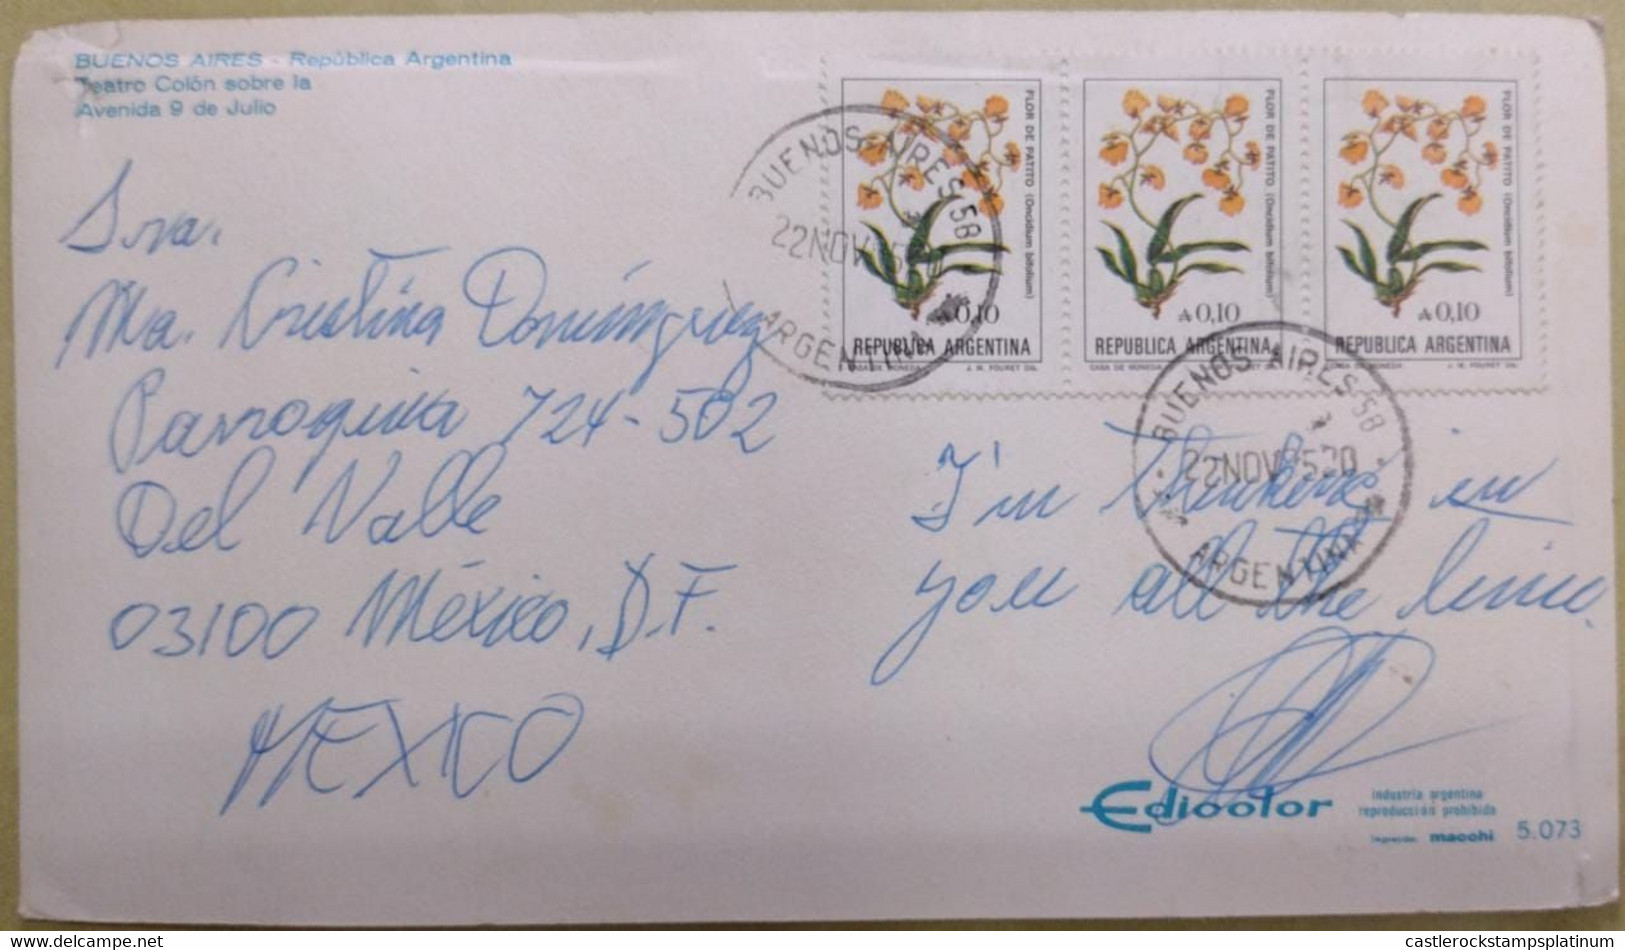 BUENOS AIRES - República Argentina
Teatro Colón sobre la
Avenida 9 de Julio
Sra.
Ma. Cristina Domínguez
Parroquia 724-502
Del Valle
03100 México, D.F.
MEXICO
FLOR DE PATITO (Oncidium bifolium)
₳0,10
REPUBLICA ARGENTINA
CASA DE MONEDA J. M. FOURET DIB.
FLOR DE PATITO (Oncidium bifolium)
₳0,10
REPUBLICA ARGENTINA
CASA DE MONEDA
FLOR DE PATITO (Oncidium bifolium)
₳0,10
REPUBLICA ARGENTINA
J. M. FOURET DIB.
BUENOS AIRES 58
22 NOV
ARGENTINA
BUENOS AIRES 58
22 NOV 85 20
ARGENTINA
I'm thinking in
you all the time.
Edicolor
industria argentina
reproducción prohibida
macchi 5.073
castlerockstamps
castlerockstampsplatinum.delcampe.net